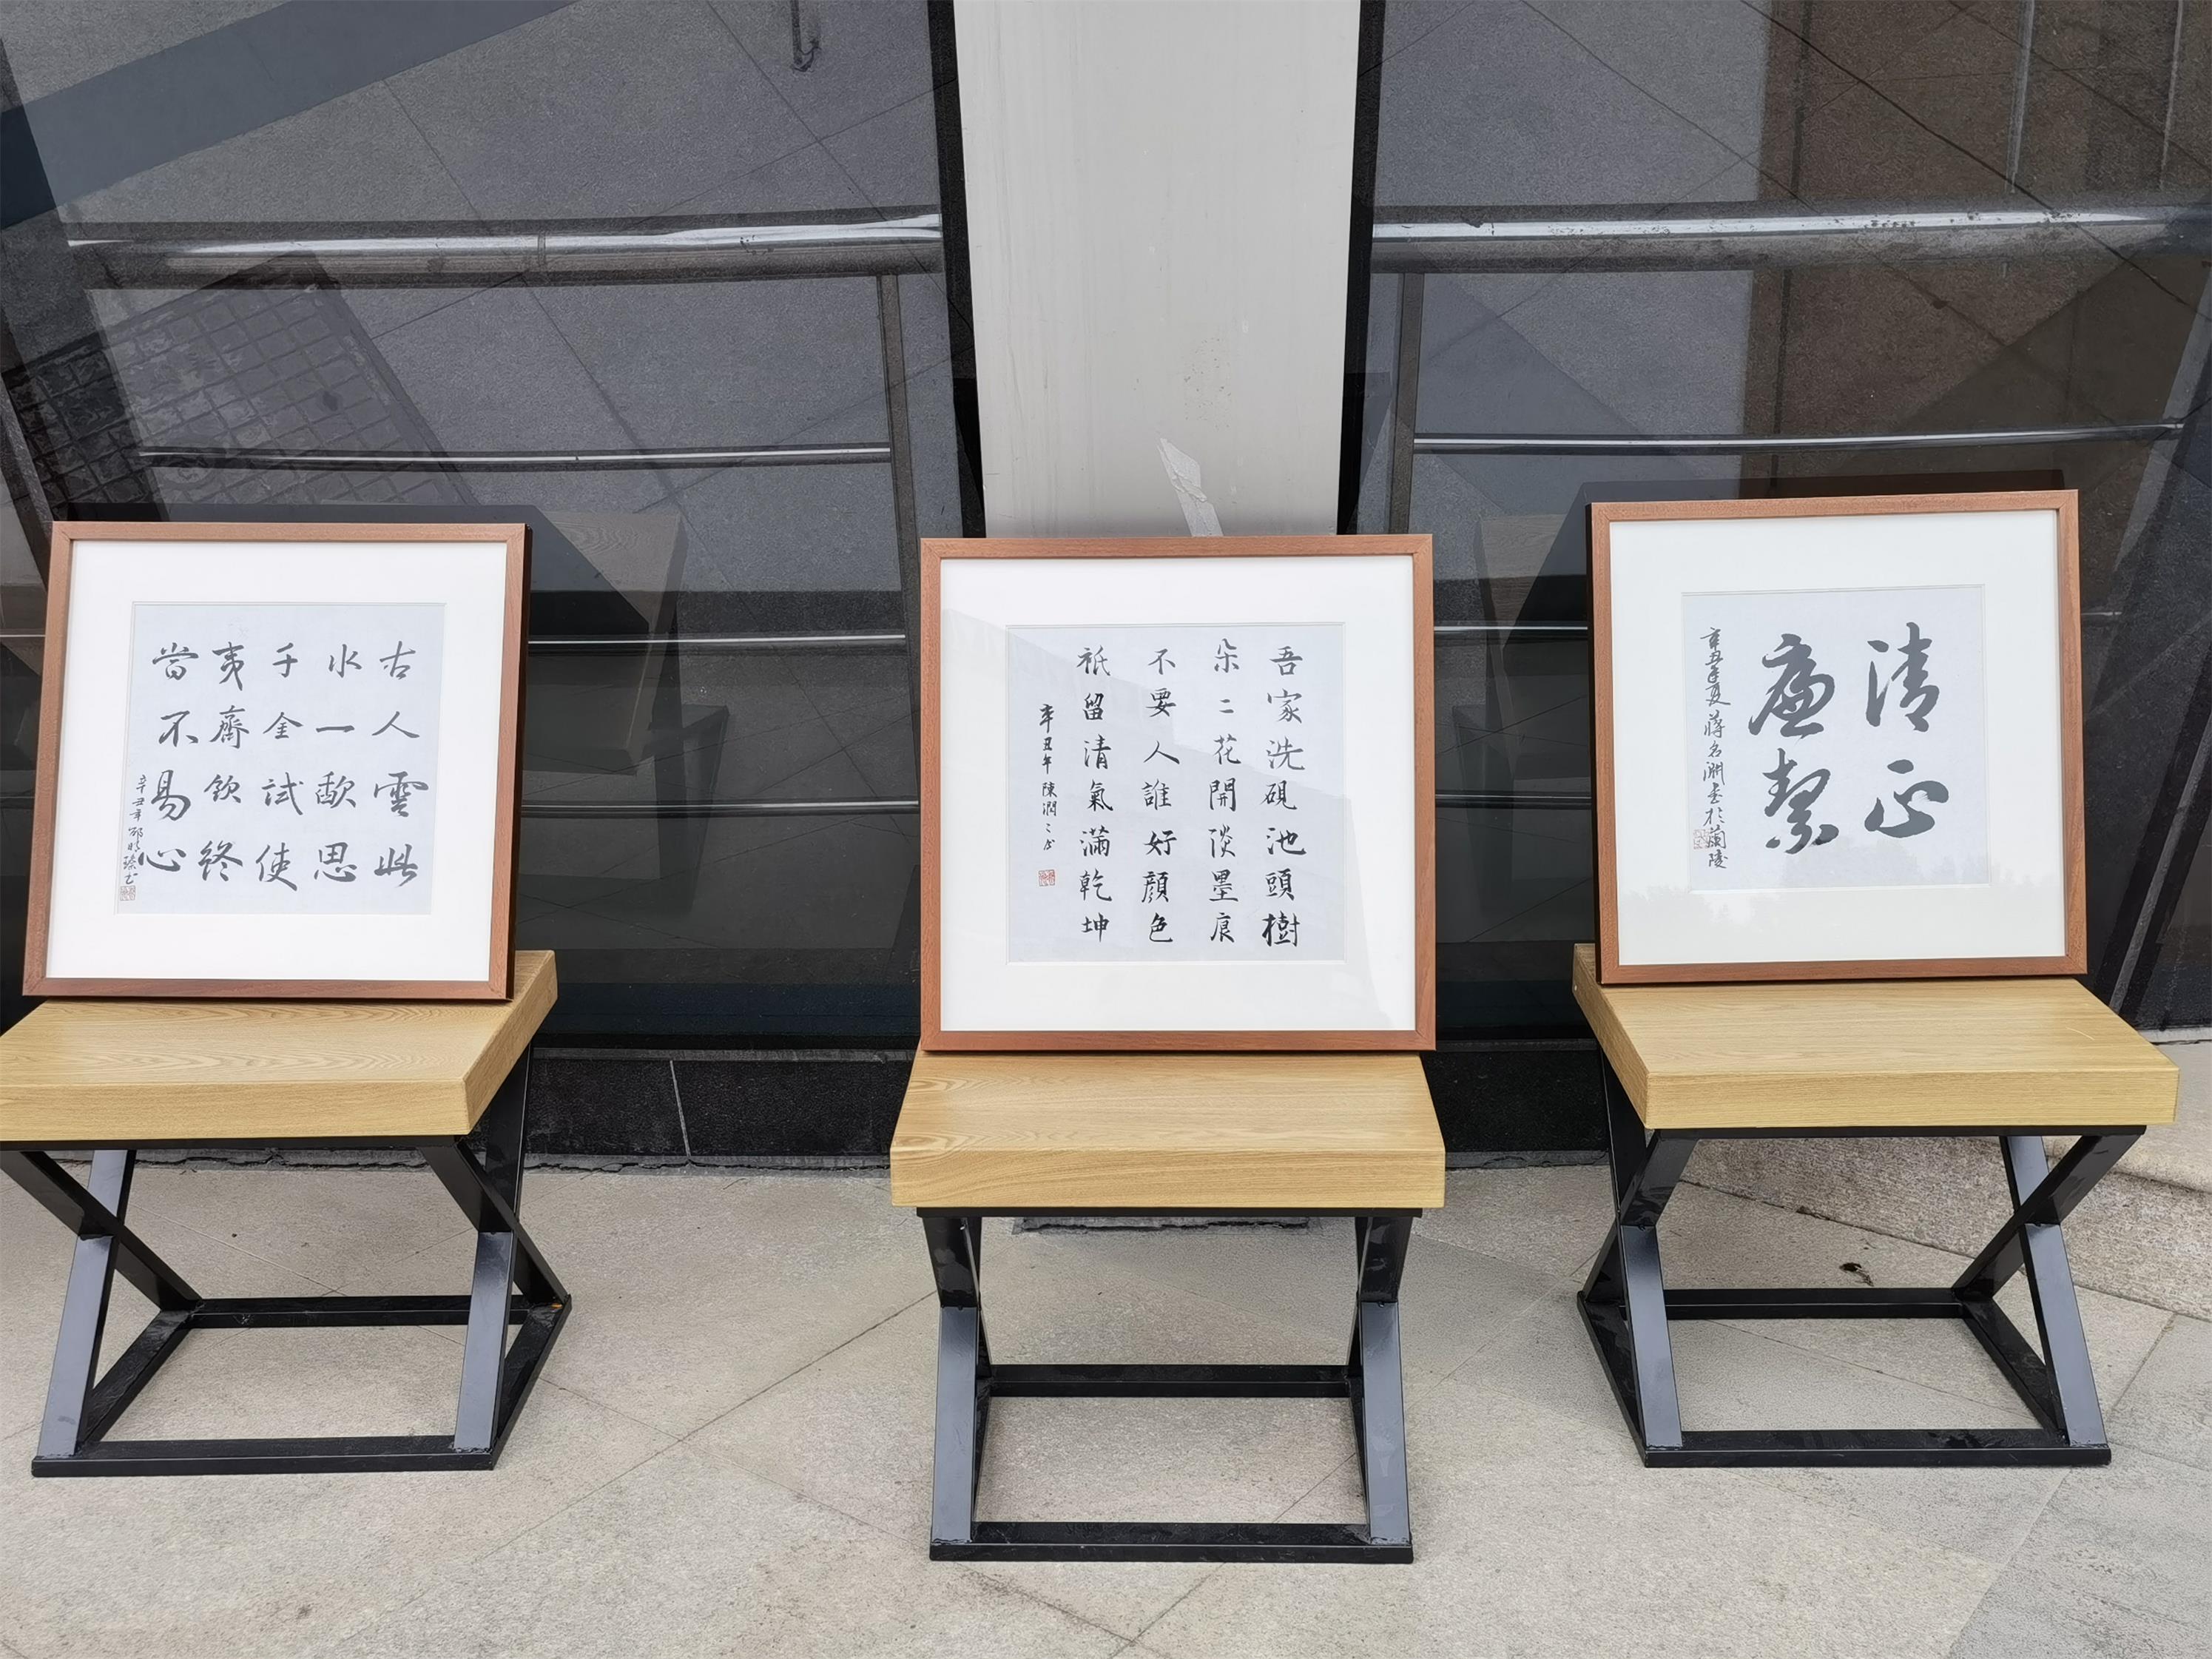 古人雲此
水一歃思
千金試使
夷齊飲終
當不易心
辛丑年
吾家洗硯池頭樹
朵二花開淡墨痕
不要人誰好顔色
祇留清氣滿乾坤
辛丑年陳潤之书
清正
廉絜
辛丑年夏蔣名淵書於蘭陵